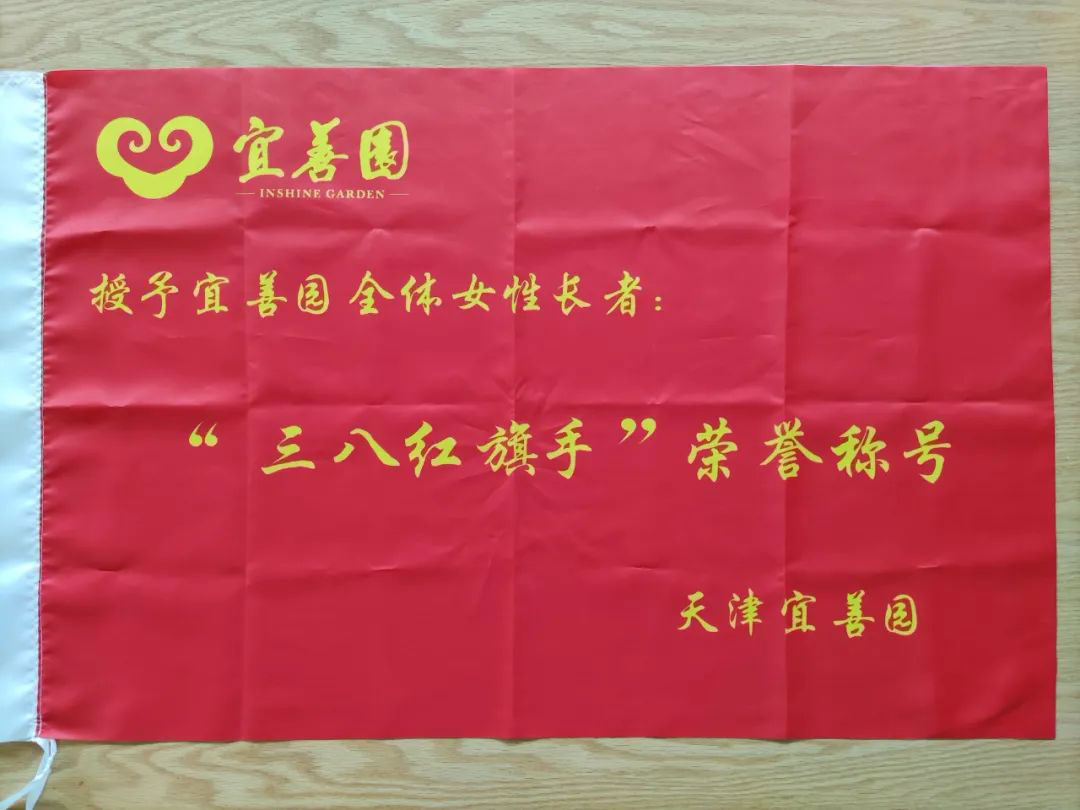 宜善園
INSHINE GARDEN
授予宜善园全体女性长者：
“三八红旗手”荣誉称号
天津宜善园